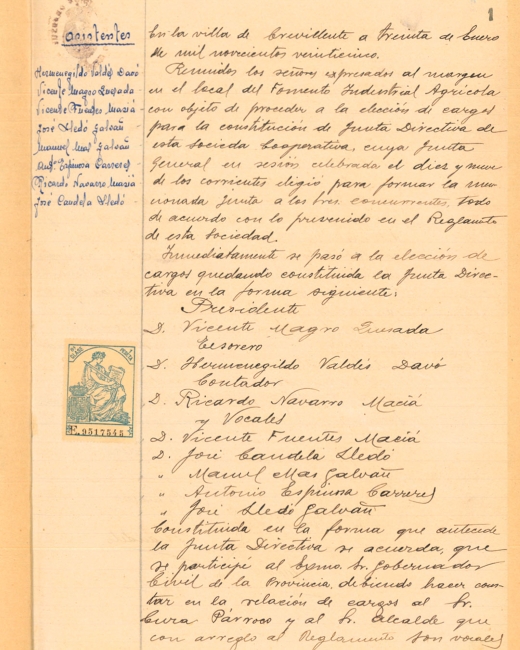 1
asistentes
Hermenegildo Valdés Davó
Vicente Magro Quesada
Vicente Fuentes Maciá
José Lledó Galvañ
Manuel Mas Galvañ
Antº Espinosa Carreres
Ricardo Navarro Maciá
José Candela Lledó
En la villa de Crevillente a treinta de Enero
de mil novecientos veinticinco.
Reunidos los señores expresados al margen
en el local del Fomento Industrial Agrícola
con objeto de proceder a la elección de cargos
para la constitución de Junta Directiva de
esta Sociedad Cooperativa, cuya Junta
General en sesión celebrada el dies y nueve
de los corrientes eligió, para formar la men-
cionada Junta a los tres. concurrentes, todo
de acuerdo con lo prevenido en el Reglamento
de esta Sociedad.
Inmediatamente se pasó a la elección de
cargos quedando constituida la Junta Direc-
tiva en la forma siguiente:
Presidente
D. Vicente Magro Quesada
Tesorero
D. Hermenegildo Valdés Davó
Contador
D. Ricardo Navarro Maciá
y Vocales
D. Vicente Fuentes Maciá
D. José Candela Lledó
" Manuel Mas Galvañ
" Antonio Espinosa Carreres
" José Lledó Galvañ
Constituida en la forma que antecede
la Junta Directiva se acuerda, que
se participé al Exmo. Sr. Gobernador
Civil de la Provincia, debiendo hacer cons-
tar en la relación de cargos al Sr.
Cura Párroco y al Sr. Alcalde que
con arreglo al Reglamento son vocales
E.9517545